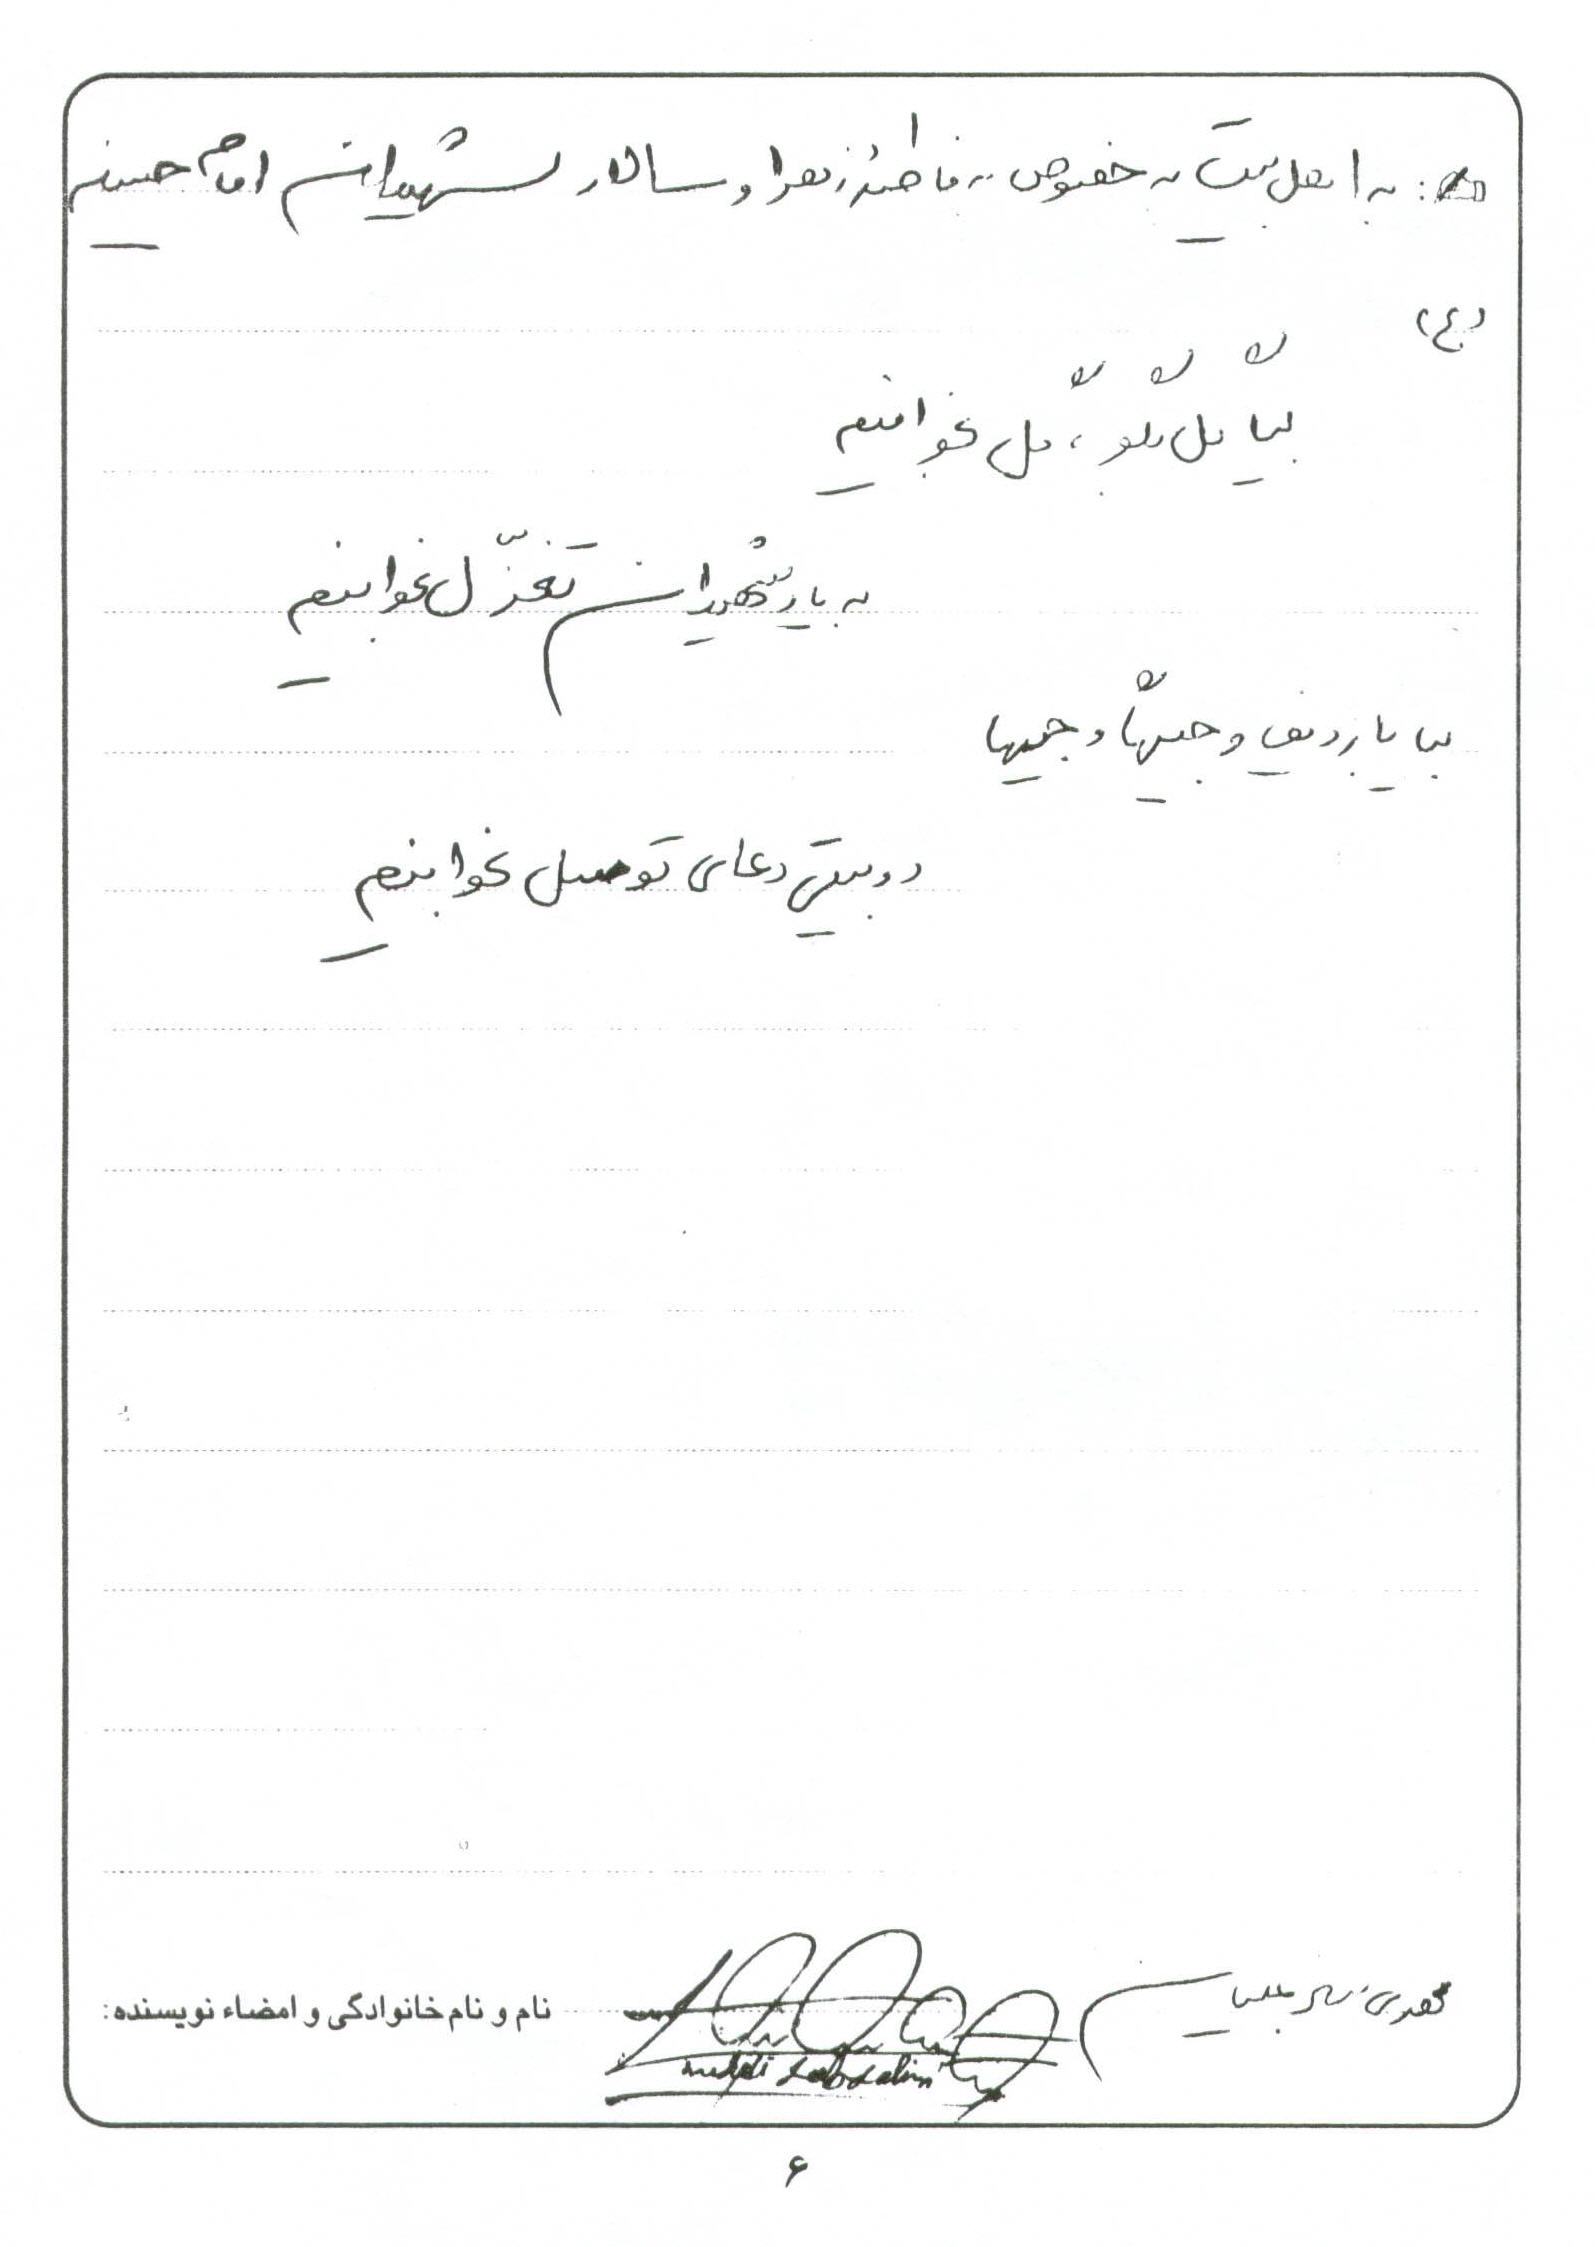 : به اهل بیت به خصوص به فاطمهٔ زهرا و سالار شهیدان امام حسین
(ع)
بیا گل بگو، گل بخوانیم
به یاد شهیدان تغزّل بخوانیم
بیا با ردیف وجیهاً وجیها
دو بیتی دعای توصل بخوانیم
مهدی
نام و نام خانوادگی و امضاء نویسنده:
mehdi
۶